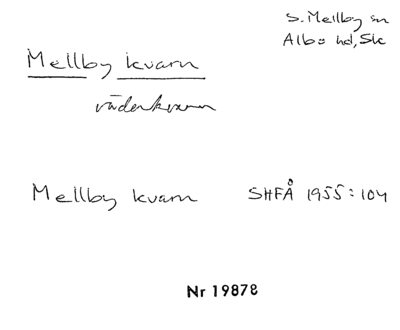 S. Mellby sn
Albo hd, Sk
Mellby kvarn
väderkvarn
Mellby kvarn SHFÅ 1955:104
Nr 19878